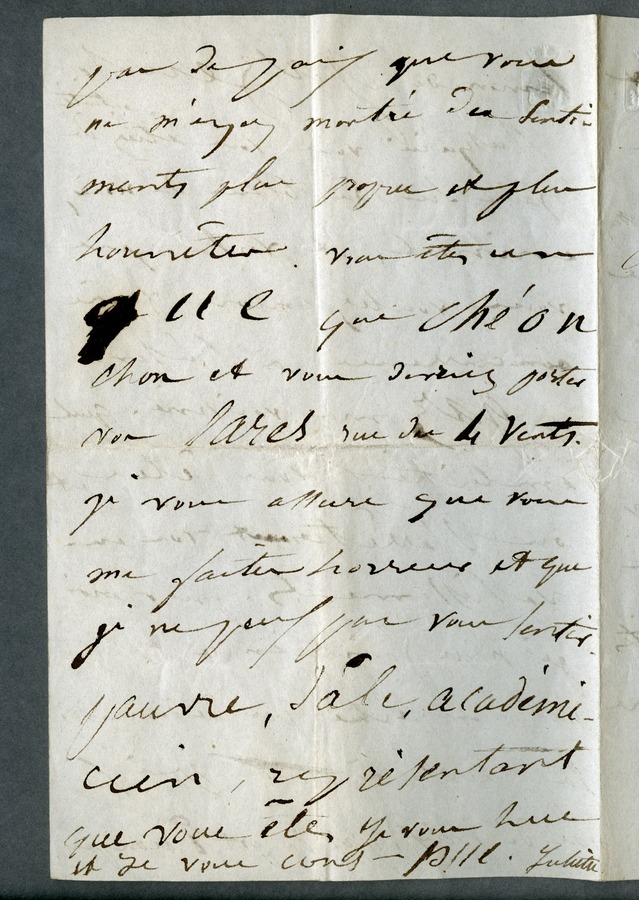 pas de jour que vous
ne m'ayez montré des senti-
ments plus propres et plus
honnêtes. vous êtes un
que chéon
chon et vous devriez porter
vos lares rue des 4 vents.
je vous assure que vous
me faites horreur et que
je ne peux pas vous sentir.
pauvre, sale, académi-
cien, représentant
que vous êtes je vous hue
et je vous cons- pue. Juliette